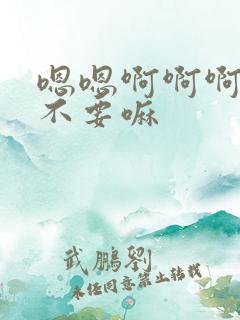 嗯嗯啊啊啊
不要嘛
武鹏劉
未经同意禁止转载